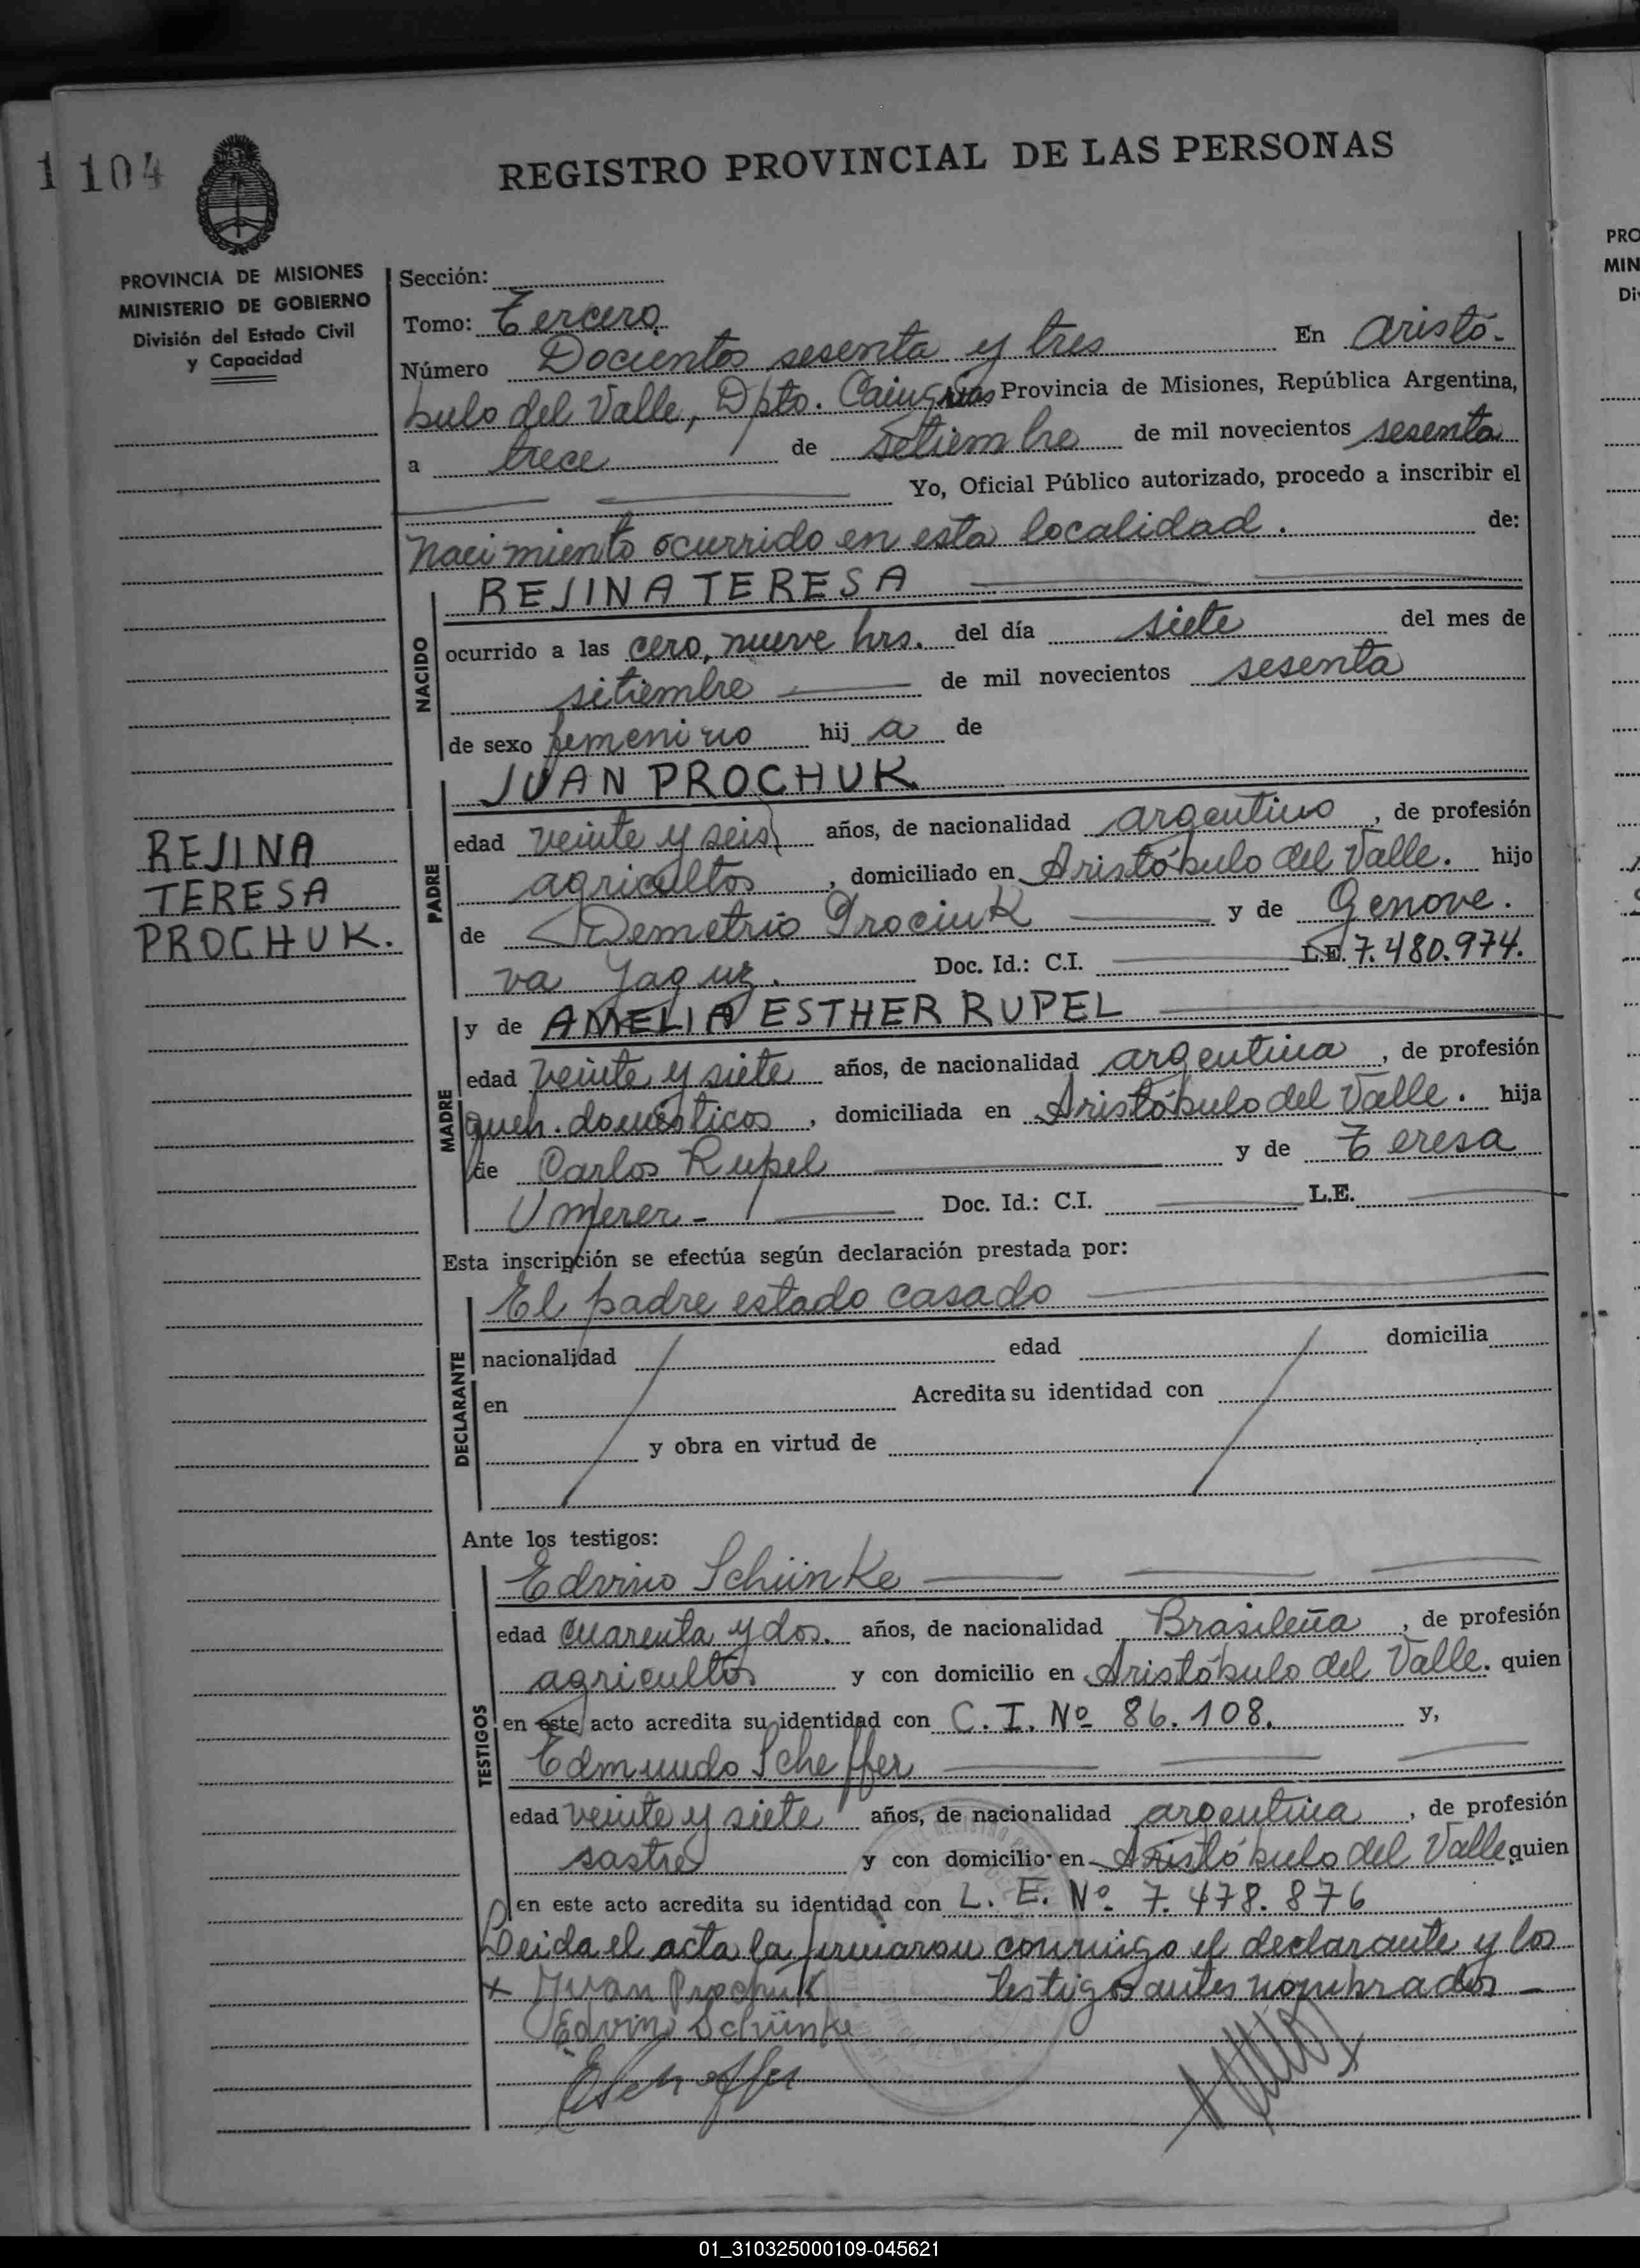 1 104
REGISTRO PROVINCIAL DE LAS PERSONAS
PROVINCIA DE MISIONES
MINISTERIO DE GOBIERNO
División del Estado Civil
y Capacidad
Sección:
Tomo: Tercero
Número Docientos sesenta y tres En Aristó-
bulo del Valle, Dpto. Cainguas Provincia de Misiones, República Argentina,
a trece de setiembre de mil novecientos sesenta
Yo, Oficial Público autorizado, procedo a inscribir el
nacimiento ocurrido en esta localidad. de:
NACIDO
REJINA TERESA
ocurrido a las cero, nueve hrs. del día siete del mes de
sitiembre de mil novecientos sesenta
de sexo femenino hij a de
REJINA
TERESA
PROCHUK.
PADRE
JUAN PROCHUK
edad veinte y seis años, de nacionalidad argentino, de profesión
agricultor, domiciliado en Aristóbulo del Valle. hijo
de Demetrio Prociuk y de Genove.
va Jaguz. Doc. Id.: C.I. L.E. 7.480.974.
MADRE
y de AMELIA ESTHER RUPEL
edad veinte y siete años, de nacionalidad argentina, de profesión
queh. domésticos, domiciliada en Aristóbulo del Valle. hija
de Carlos Rupel y de Teresa
Umferer- Doc. Id.: C.I. L.E.
Esta inscripción se efectúa según declaración prestada por:
DECLARANTE
El padre estado casado
nacionalidad edad domicilia
en Acredita su identidad con
y obra en virtud de
Ante los testigos:
TESTIGOS
Edvino Schünke
edad cuarenta y dos. años, de nacionalidad Brasileña, de profesión
agricultor y con domicilio en Aristóbulo del Valle. quien
en este acto acredita su identidad con C. I. Nº 86.108. y,
Edmundo Scheffer
edad veinte y siete años, de nacionalidad argentina, de profesión
sastre y con domicilio en Aristóbulo del Valle quien
en este acto acredita su identidad con L. E. Nº 7.478.876
Leida el acta la firmaron conmigo el declarante y los
x Juan Prochuk testigos antes nombrados-
Edvino Schünke
EScheffer
PRO
MIN
Di
01_310325000109-045621